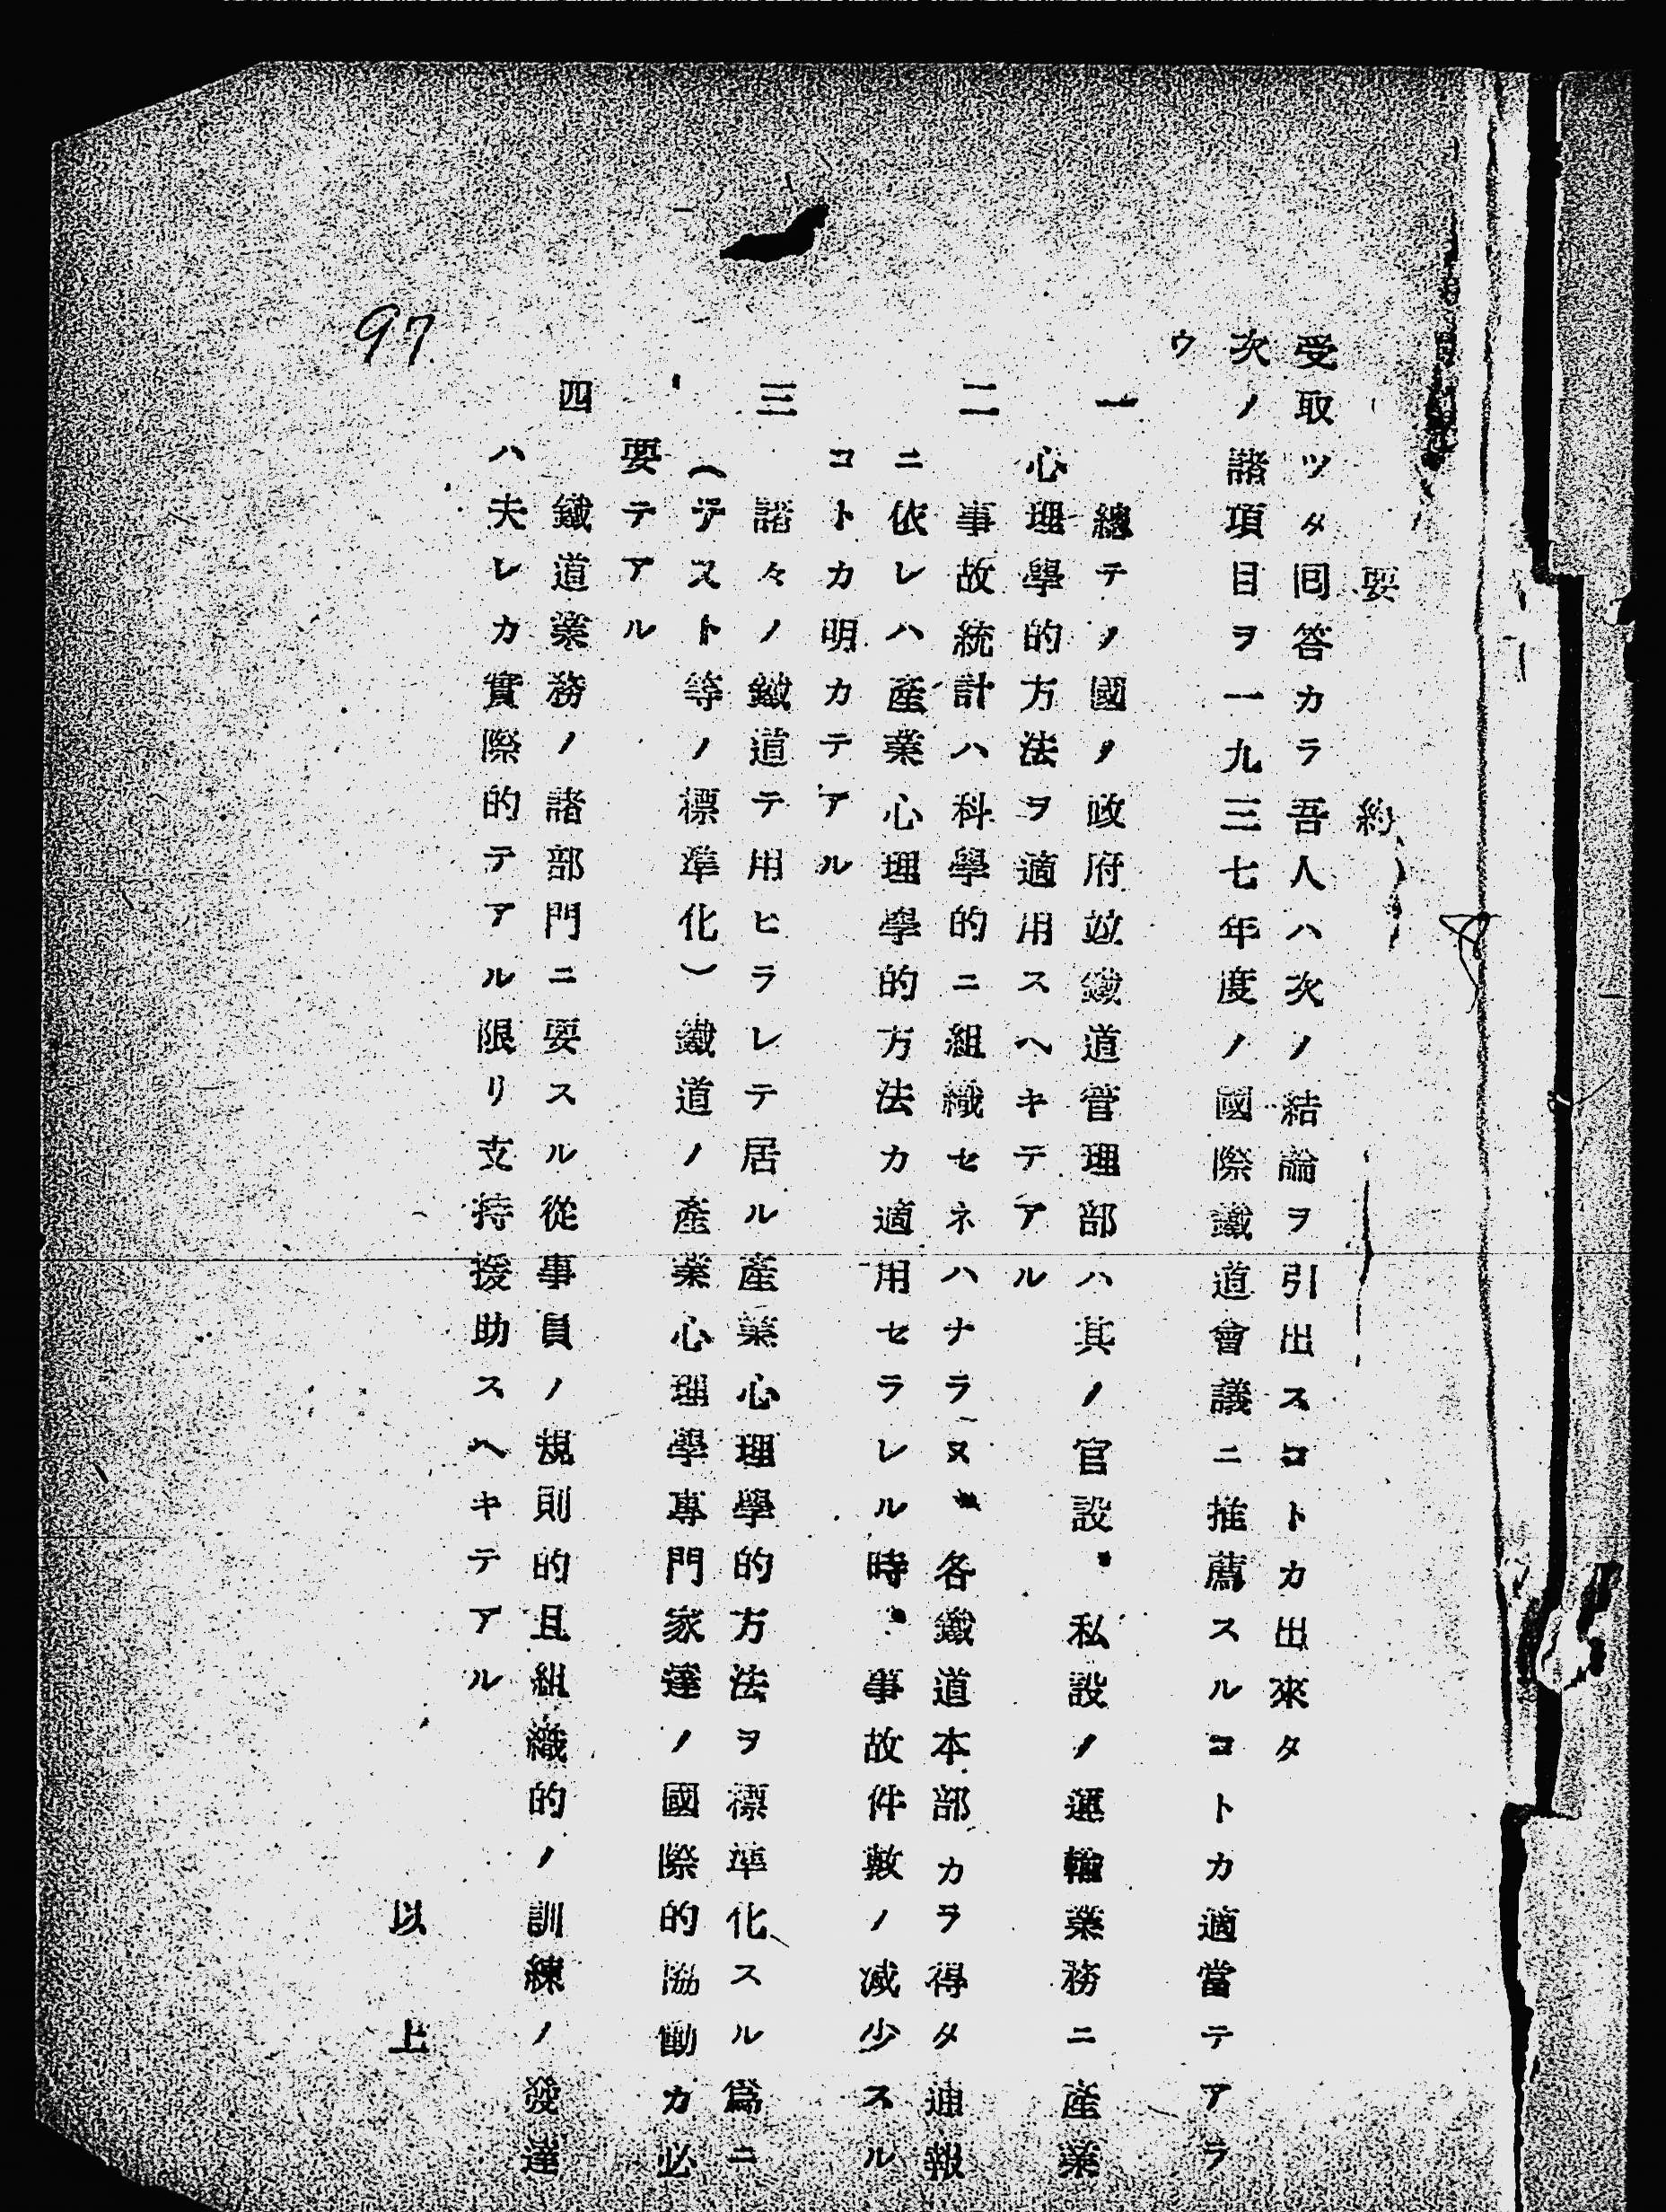 要約
受取ツタ囘答カラ吾人ハ次ノ結論ヲ引出スコトカ出來タ
次ノ諸項目ヲ一九三七年度ノ國際鐵道會議ニ推薦スルコトカ適當テアラ
ウ
一　總テノ國ノ政府竝鐵道管理部ハ其ノ官設、私設ノ運輸業務ニ產業
心理學的方法ヲ適用スヘキテアル
二　事故統計ハ科學的ニ組織セネハナラヌ、各鐵道本部カラ得タ通報
ニ依レハ產業心理學的方法カ適用セラレル時、事故件數ノ减少スル
コトカ明カテアル
三　諸々ノ鐵道テ用ヒラレテ居ル產業心理學的方法ヲ標準化スル爲ニ
（テスト等ノ標準化）鐵道ノ產業心理學專門家達ノ國際的協働カ必
要テアル
四　鐵道業務ノ諸部門ニ要スル從事員ノ規則的且組織的ノ訓練ノ發達
ハ夫レカ實際的テアル限リ支持援助スヘキテアル
以上
97